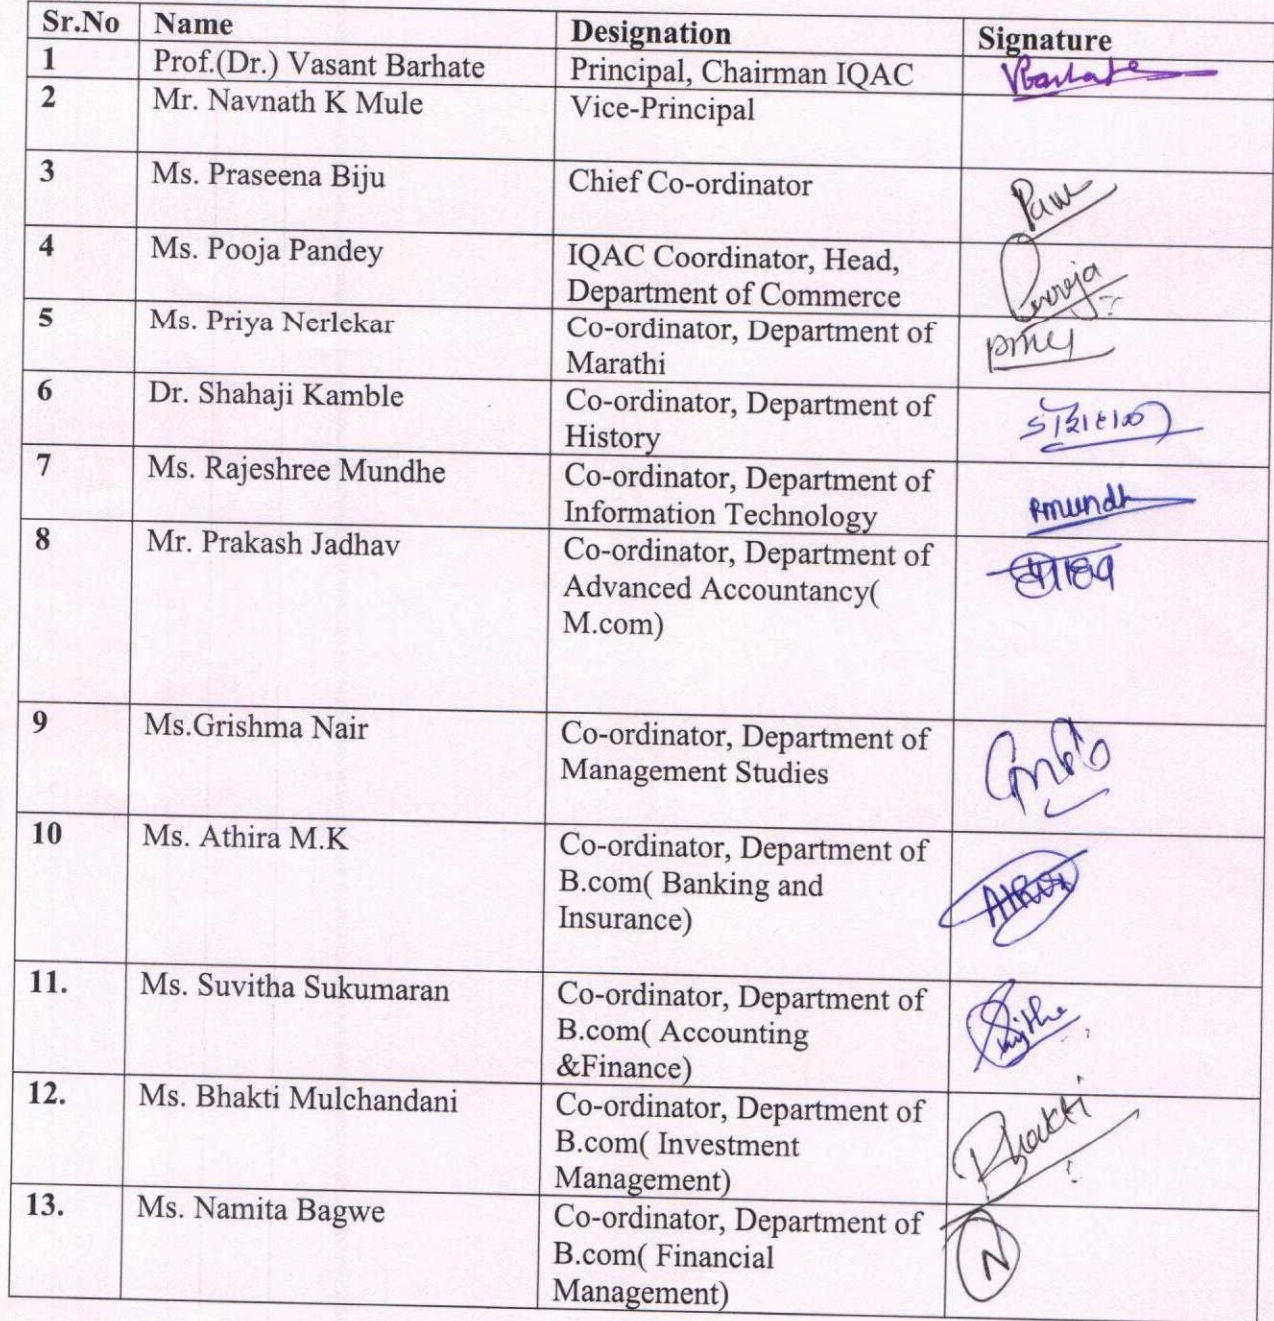 Sr.No Name Designation Signature
1 Prof.(Dr.) Vasant Barhate Principal, Chairman IQAC VBarhate
2 Mr. Navnath K Mule Vice-Principal
3 Ms. Praseena Biju Chief Co-ordinator
4 Ms. Pooja Pandey IQAC Coordinator, Head,
Department of Commerce Pooja
5 Ms. Priya Nerlekar Co-ordinator, Department of
Marathi
6 Dr. Shahaji Kamble Co-ordinator, Department of
History
7 Ms. Rajeshree Mundhe Co-ordinator, Department of
Information Technology Rmundh
8 Mr. Prakash Jadhav Co-ordinator, Department of
Advanced Accountancy(
M.com)
9 Ms.Grishma Nair Co-ordinator, Department of
Management Studies
10 Ms. Athira M.K Co-ordinator, Department of
B.com( Banking and
Insurance)
11. Ms. Suvitha Sukumaran Co-ordinator, Department of
B.com( Accounting
&Finance)
12. Ms. Bhakti Mulchandani Co-ordinator, Department of
B.com( Investment Bhakti
Management)
13. Ms. Namita Bagwe Co-ordinator, Department of
B.com( Financial N
Management)